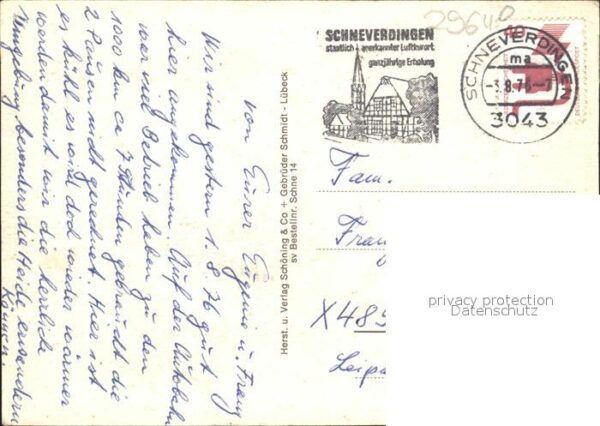 Wir sind gestern 1. 8. 76 gut
hier angekommen. Auf der Autobahn
war viel Betrieb haben zu den
1000 km ca 7 Stunden gebraucht die
2 Pausen nicht gerechnet. Hier ist
es kühl es wird doch wieder wärmer
werden damit wir die herrliche
Umgebung besonders die Heide
können.
von Eurer Eugenie u. Franz
Herst. u. Verlag Schöning & Co + Gebrüder Schmidt - Lübeck
sv Bestellnr. Schne 14
29640
SCHNEVERDINGEN
staatlich anerkannter Luftkurort
ganzjährige Erholung
SCHNEVERDINGEN
ma
-3.8.76-7
3043
Fam.
X485
Leipz
privacy protection
Datenschutz